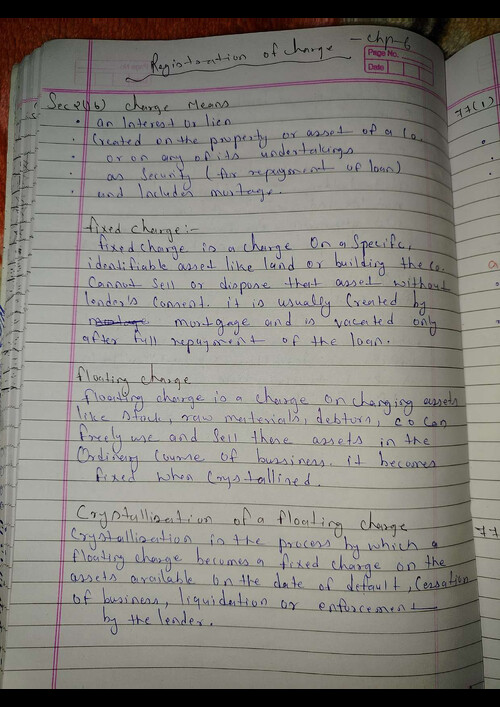 Registration of charge - Chp-6
Page No.
Date
Sec 2(16) charge Means
· an Interest or lien
· Created on the property or asset of a Co.
· or on any of its undertakings
· as Security (for repayment of loan)
· and Includes mortage.
fixed charge:-
fixed charge is a charge on a Specific,
identifiable asset like land or building the co.
Cannot Sell or dispose that asset without
lender's Consent. it is usually Created by
mortgage and is vacated only
after full repayment of the loan.
floating charge
floating charge is a charge on changing assets
like Stock, raw materials, debtors, co can
freely use and Sell these assets in the
Ordinary Course of bussiness. it becomes
fixed when Crystallised.
Crystallisation of a floating charge
Crystallisation is the process by which a
floating charge becomes a fixed charge on the
assets available on the date of default, Cessation
of business, liquidation or enforcement
by the lender.
77(1)
77